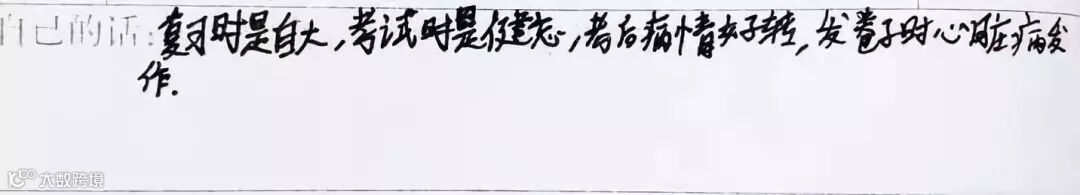 自己的话:复习时是自大,考试时是健忘,考后病情好转,发卷子时心脏病发
作.
大数跨境